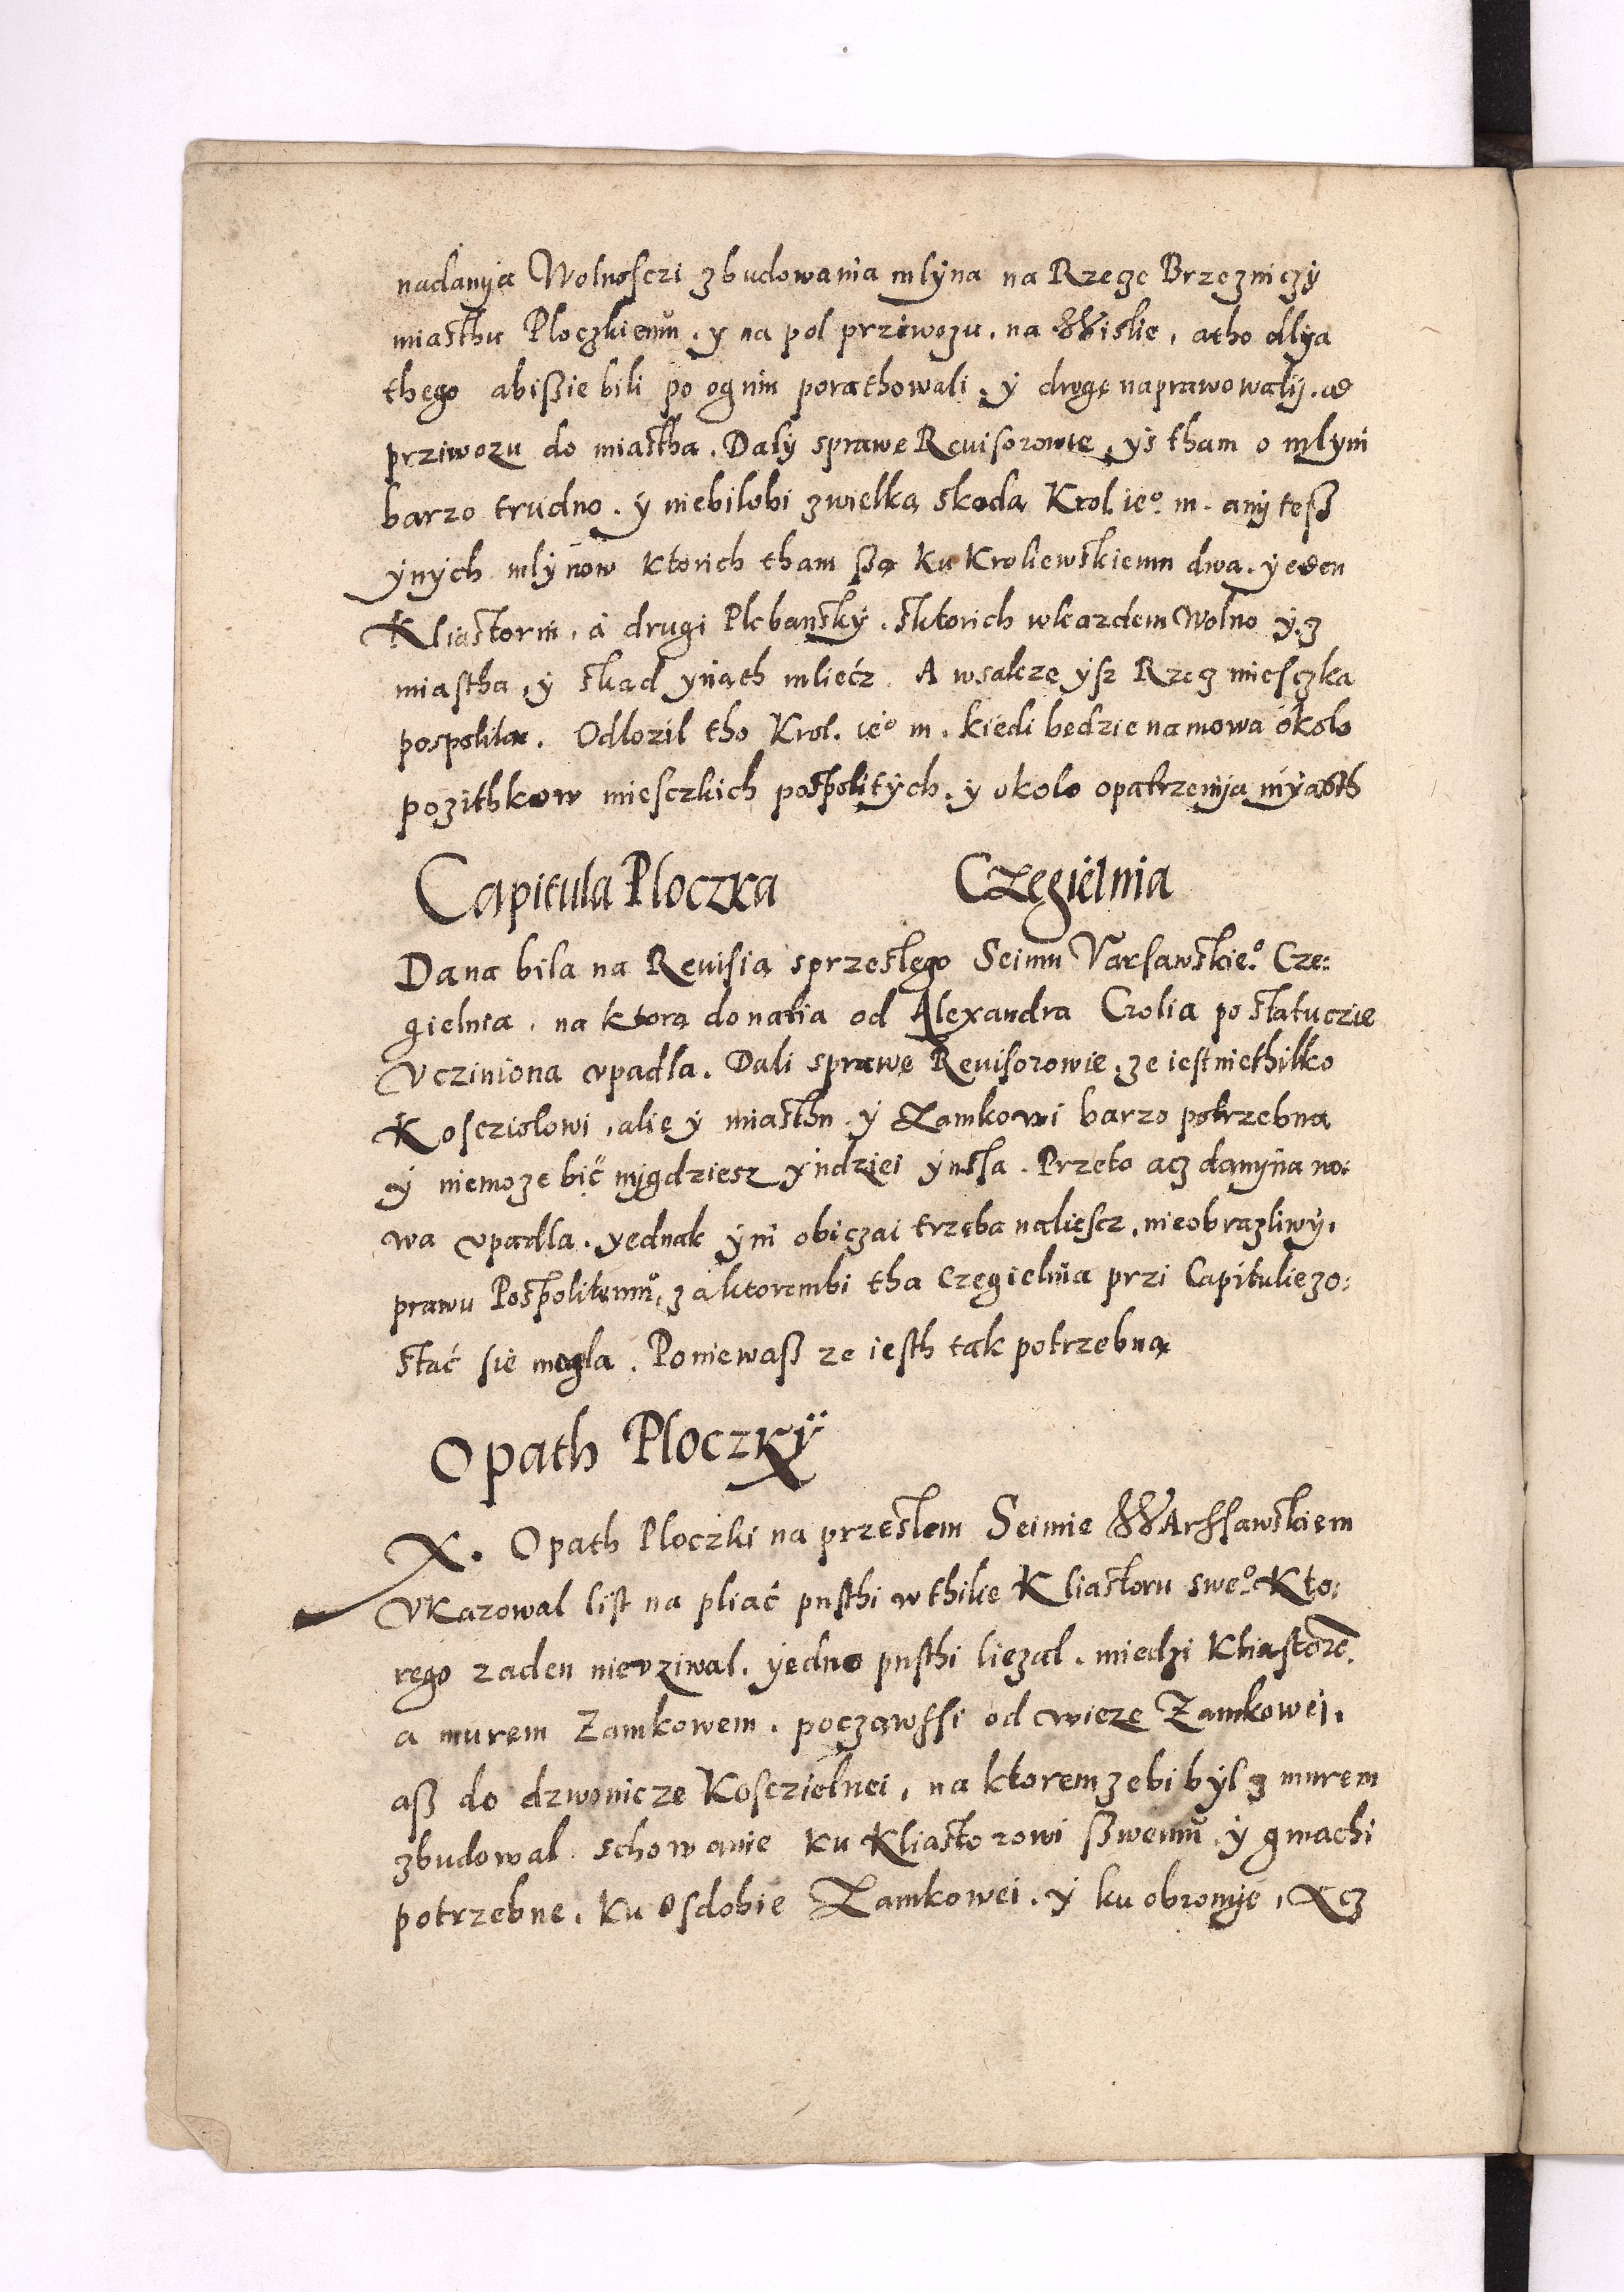 nadanÿa Wolnosczi zbudowania mlÿna na Rzecze Brzezniczÿ
miasthu Ploczkiemu. y na pol prziwozu. na Wislie, atho dlÿa
thego abißie bili po ogniu porathowali, ÿ drogę naprawowalÿ. od
prziwozu do miastha. Dalÿ sprawe Revisorowie, ÿs tham o mlyni
barzo trudno. ÿ niebilobi zwielką skodą Krol. ieº. m. anÿ teß
ÿnÿch mlÿnow ktorich tham są ku Kroliewskiemu dwa. yeden
Kliastorni, a drugi Plebanskÿ. sktorich wkazdem Wolno ÿ z
miastha, ÿ skad ÿnąth mliecz. A wsakze ÿsz Rzecz miesczka
pospolita. Odlozil tho Krol. ieº m. kiedi bedzie namowa okolo
pozithkow miesczkich pospolitÿch. y okolo opatrzenÿa mÿasth
Capitula Ploczka Czegielnia
Dana bila na Revisią sprzeslego Seimu Varsawskieº. Cze:
gielnia, na ktorą donatia od Alexandra Crolia po statucie
Vcziniona vpadla. Dali sprawę Revisorowie, ze iest niethilko
Kosciolowi, alie ÿ miasthu. ÿ Zamkowi barzo potrzebna
ÿ niemoze bić nÿgdziesz ÿndziei ÿnsa. Przeto acz danÿna no:
wa vpadla. yednak ÿni obiczai trzeba naliescz, nieobrazliwÿ,
prawu Pospolitemu, zaktorembi tha Czegielnia przi Capituliezo:
stać się mogla. Poniewaß ze iesth tak potrzebna
Opath Ploczkÿ
X. Opath Ploczki na przeslem Seimie WArssawskiem
Vkazowal list na pliać pusthi wthilie Kliastoru sweº. Kto:
rego zaden nievziwal. ÿedno pusthi liezal. miedzi Kliastorē.
a murem Zamkowem. począwssi od wieze Zamkowei,
aß do dzwonicze Koscielnei, na ktorem zebi bÿl z murem
zbudowal schowanie ku Kliastorowi ßwemu, ÿ gmachi
potrzebne, ku osdobie Zamkowei. ÿ ku obronÿe, Acz